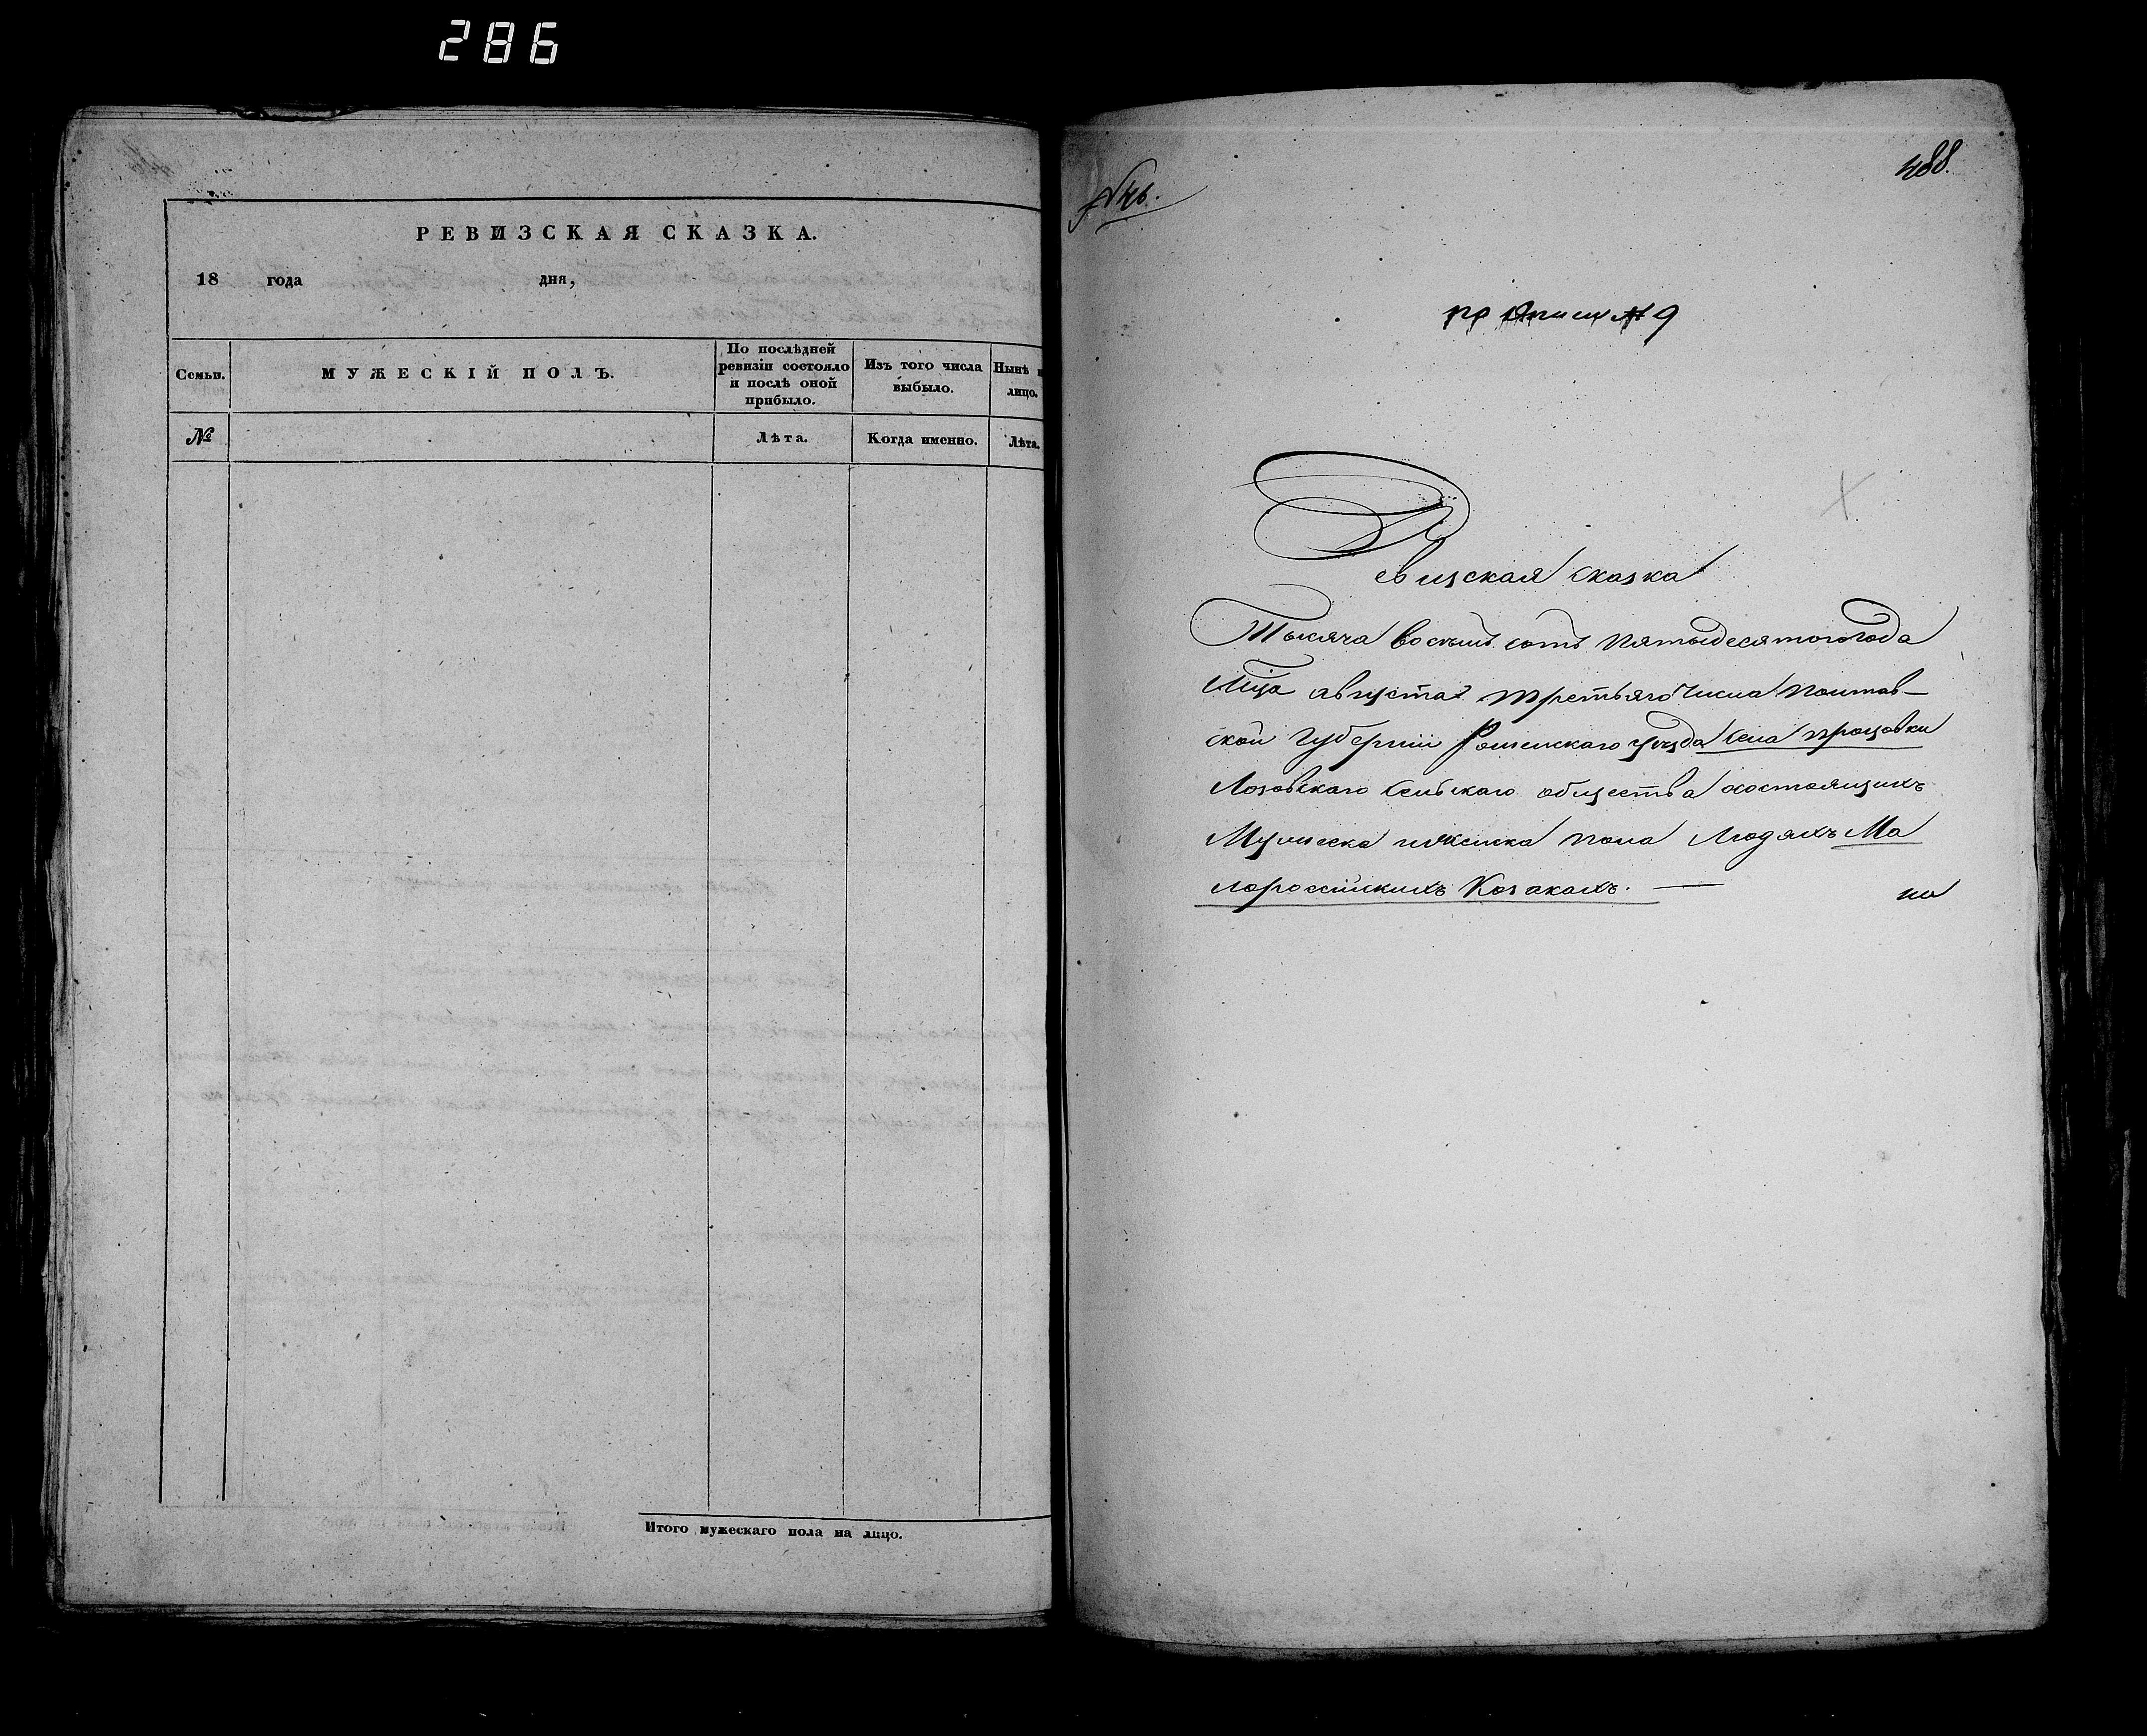 286
РЕВИЗСКАЯ СКАЗКА.
18 года дня,
Семьи.
МУЖЕСКІЙ ПОЛЪ.
По послѣдней ревизіи состояло и послѣ оной прибыло.
Изъ того числа выбыло.
Нынѣ лицо.
№
Лѣта.
Когда именно.
Лѣта.
Итого мужескаго пола на лицо.
488.
по Описи № 9
Ревизская сказка
Тысяча восемь сотъ пятьдесятого года
Мца августа третьяго числа Полтав-
ской Губерніи Роменскаго уезда села процовки
Лозовскаго Сельскаго общества состоящихъ
Мужеска и женска пола Людяхъ Ма
лоросейскихъ Козакахъ. —
на